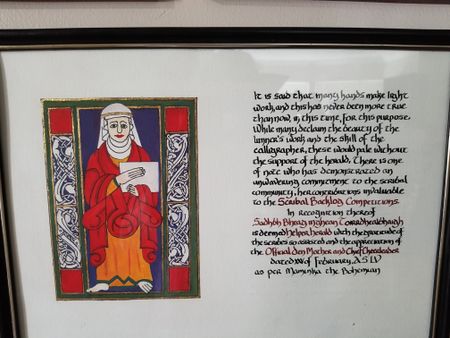 It is said that many hands make light
work, and this has never been more true
than now, in this time, for this purpose.
While many declaim the beauty of the
limner's work and the skill of the
calligrapher, these would pale without
the support of the herald. There is one
of note who has demonstrated an
unwavering commitment to the scribal
community, her contributions invaluable
to the Scribal Backlog Competitions.
In recognition thereof
Sadhbh Bheag inghean
is deemed Helper Herald with the gratitude of
the scribes so assisted and the appreciation of
the Official Den Mother and Chief Cheerleader
dated of February, A.S. LV
as per Maminka the Bohemian